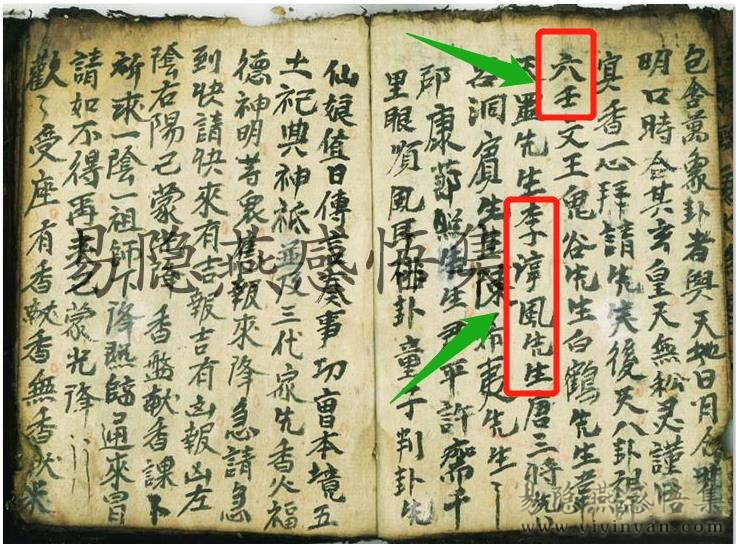 包含萬象卦者與天地日月合
明口時合其玄皇天無私灵謹
寅香一心拜請先天後天八卦祖
六壬文王鬼谷先生白鶴先生
罡先生李淳風先生唐三時
洞賓先生陳希夷先生〻
邵康節先生君平許齋千
里眼順風耳排卦童子判卦先
仙娘值日傳言奏事功曹本境五
土祀典神祇並及三代家先香火福
德神明等衆報來降急請急
到快請快來有吉報吉有凶報凶左
陰右陽己蒙香盤献香課下
所求一陰一祖師下降師通來冒
請如不得再己蒙光降
歡〻受座有香献香無香献米
易隐燕感悟集
易隐燕感悟集
www.yiyinyan.com